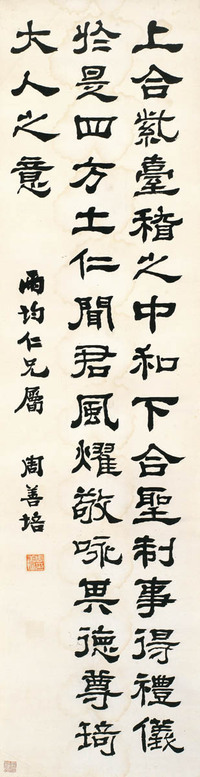 上合紫臺稽之中和下合聖制事得禮儀
於是四方土仁聞君風燿敬咏其德尊琦
大人之意
雨均仁兄屬 周善培